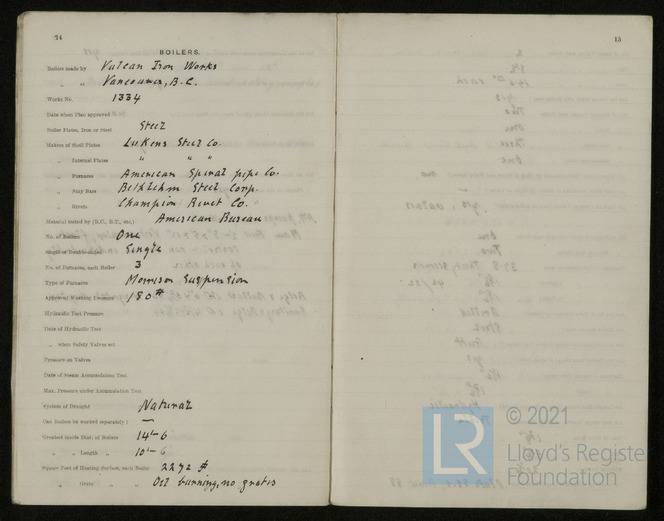 14
BOILERS.
Boilers made by Vulcan Iron Works
„ at Vancouver, B.C.
Works No. 1334
Date when Plan approved
Boiler Plates, Iron or Steel Steel
Makers of Shell Plates Lukens Steel Co.
„ Internal Plates „ „ „
„ Furnaces American Spiral pipe Co.
„ Stay Bars Bethlehm Steel Corp.
„ Rivets Champion Rivet Co.
Material tested by (B.C., B.T., etc.) American Bureau
No. of Boilers One
Single or Double-ended Single
No. of Furnaces, each Boiler 3
Type of Furnaces Morrison Suspension
Approved Working Pressure 180 #
Hydraulic Test Pressure
Date of Hydraulic Test
„ when Safety Valves set
Pressure on Valves
Date of Steam Accumulation Test
Max. Pressure under Accumulation Test
System of Draught Natural
Can Boilers be worked separately? —
Greatest inside Diar. of Boilers 14'-6
„ „ Length 10'-6
Square Feet of Heating Surface, each Boiler 2272 #
„ Grate „ „ Oil burning, no grates
15
© 2021
LR
Lloyd's Register
Foundation